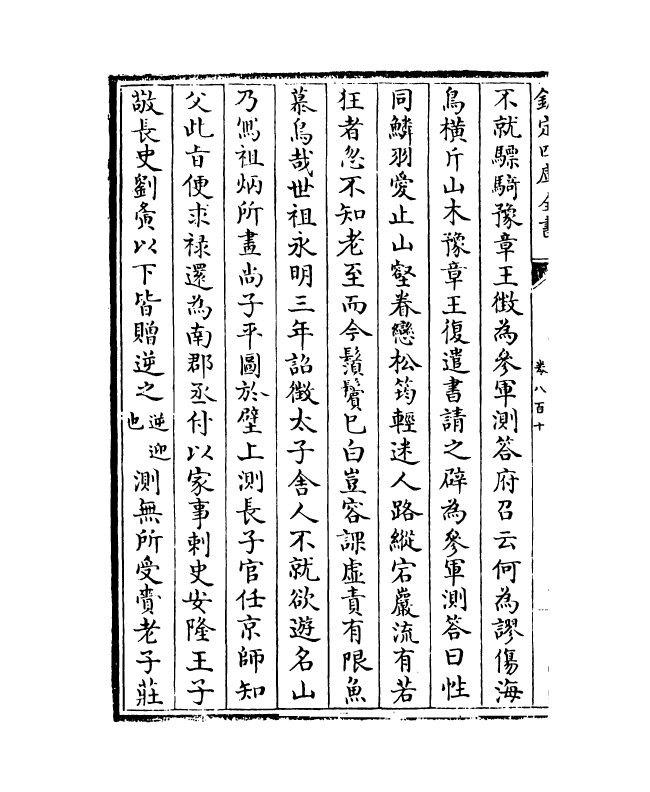 欽定四庫全書
卷八百十
不就驃騎豫章王徴為參軍測答府召云何為謬傷海
鳥橫斤山木豫章王復遣書請之辟為參軍測答曰性
同鱗羽愛止山壑眷戀松筠輕迷人路縱宕巖流有若
狂者忽不知老至而今鬚鬢已白豈容課虛責有限魚
慕鳥哉世祖永明三年詔徴太子舍人不就欲遊名山
乃寫祖炳所畫尚子平圖於壁上測長子官任京師知
父此旨便求禄還為南郡丞付以家事刺史安隆王子
敬長史劉㢘以下皆贈逆之逆迎也測無所受賫老子莊